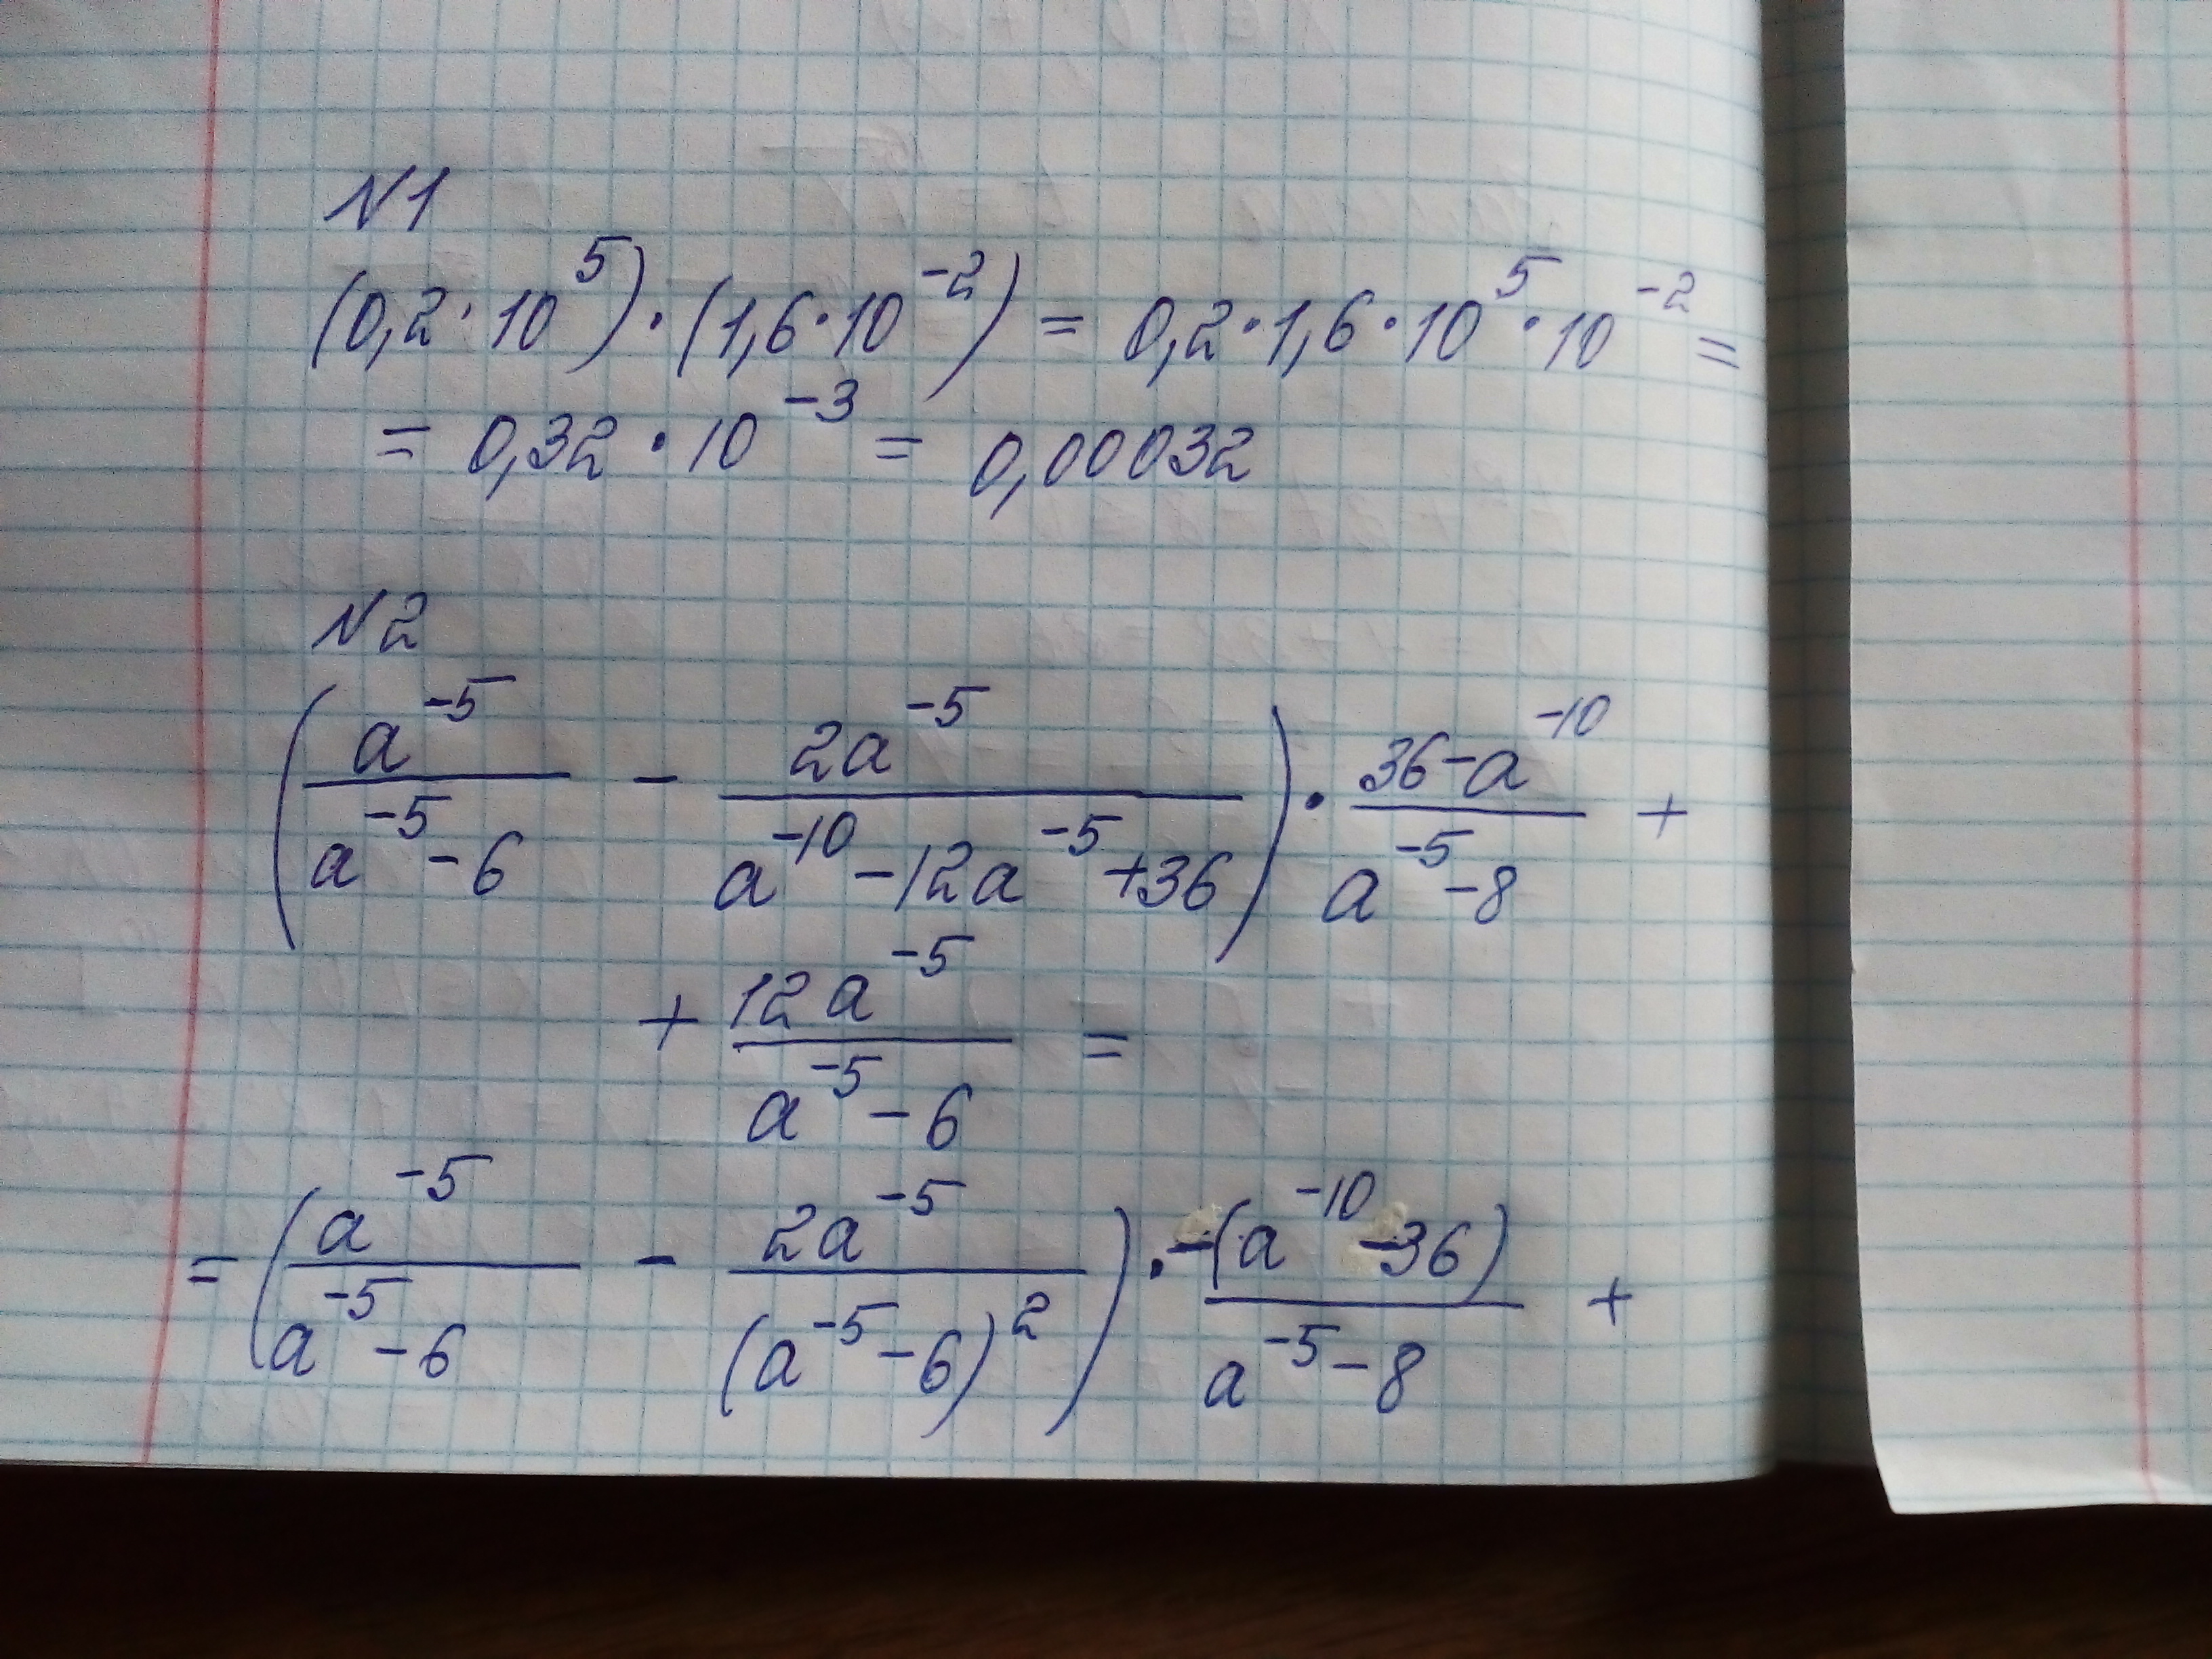 N1
(0,2·10⁵)·(1,6·10⁻²) = 0,2·1,6·10⁵·10⁻² =
= 0,32·10⁻³ = 0,00032
N2
(a⁻⁵/(a⁻⁵-6) - 2a⁻⁵/(a⁻¹⁰-12a⁻⁵+36))·(36-a⁻¹⁰)/(a⁻⁵-8) +
+ 12a⁻⁵/(a⁻⁵-6) =
= (a⁻⁵/(a⁻⁵-6) - 2a⁻⁵/(a⁻⁵-6)²)·-(a⁻¹⁰-36)/(a⁻⁵-8) +